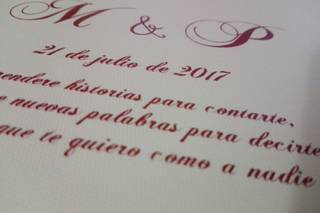 M & P
21 de julio de 2017
rendere historias para contarte,
e nuevas palabras para decirte
que te quiero como a nadie